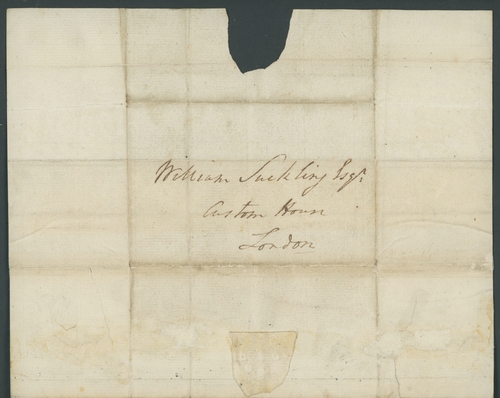 William Suckling Esqr.
Custom House
London